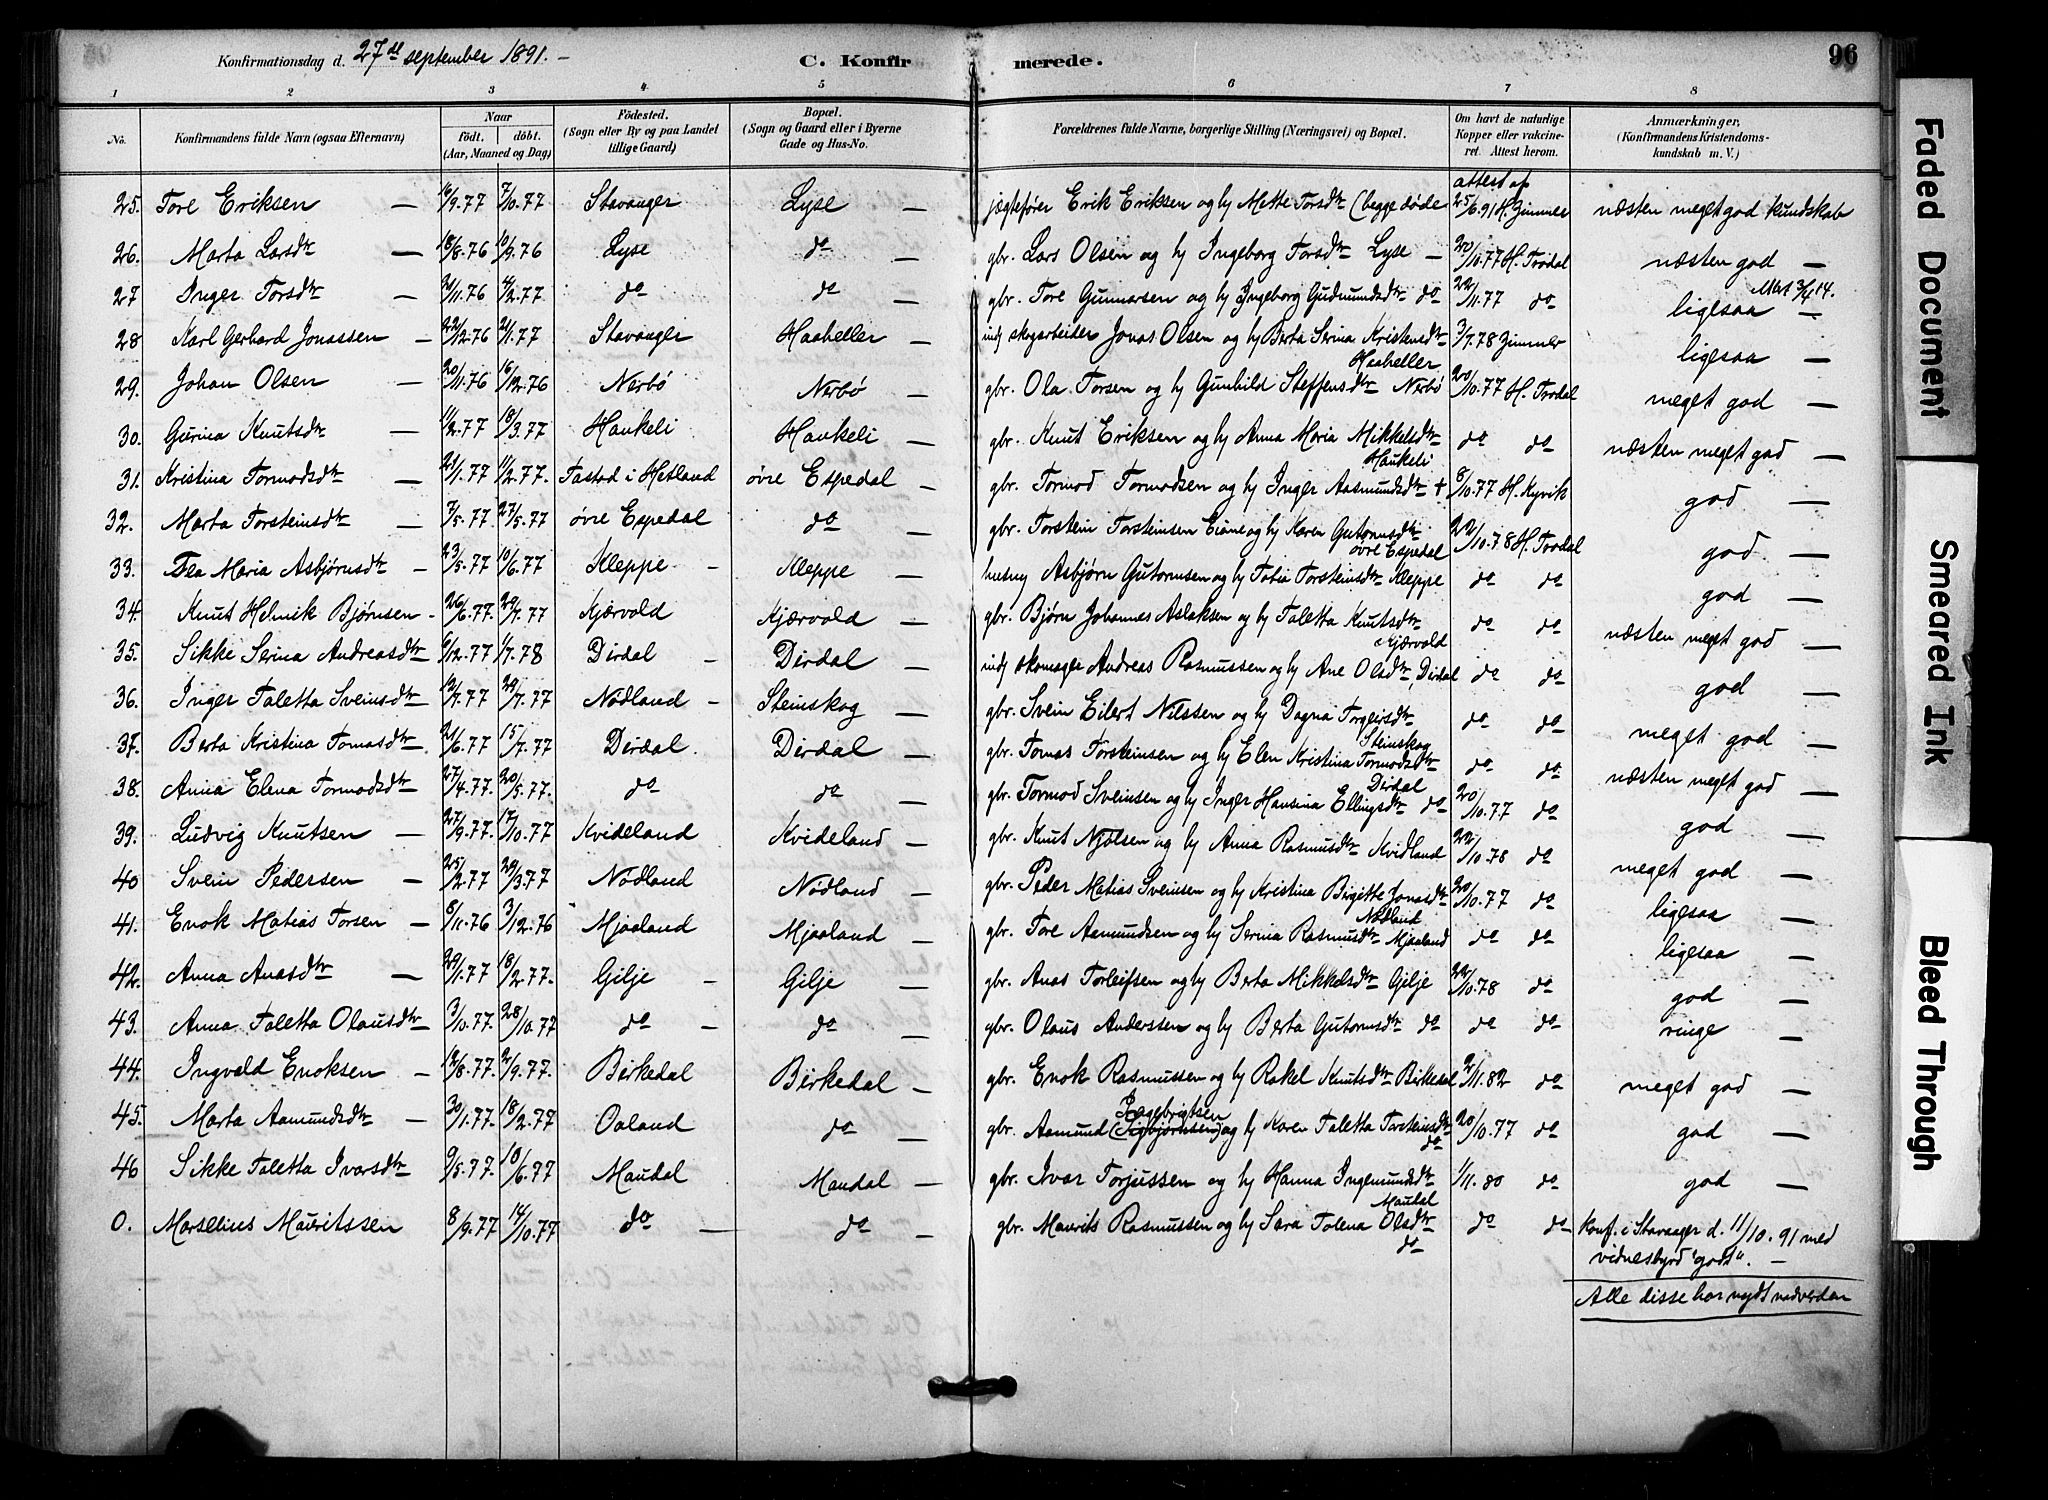 Konfirmationsdag d. 27de september 1891. –
C. Konfirmerede.
96
1 2 3 4 5 6 7 8
No. Konfirmandens fulde Navn (ogsaa Efternavn) Naar födt. döbt. (Aar, Maaned og Dag) Födested. (Sogn eller By og paa Landet tillige Gaard) Bopæl. (Sogn og Gaard eller i Byerne Gade og Hus-No. Forældrenes fulde Navne, borgerlige Stilling (Næringsvei) og Bopæl. Om havt de naturlige Kopper eller vakcineret. Attest herom. Anmærkninger, (Konfirmandens Kristendomskundskab m. V.)
attest af
25. Tore Eriksen — 16/9.77 7/10.77 Stavanger Lyse — jægtefører Erik Eriksen og h Mette Torsdtr (begge døde 25/6.91 H. Zimmer næsten meget god kundskab
26. Marta Larsdtr — 18/8.76 10/9.76 Lyse do — gbr. Lars Olsen og h Ingeborg Torsdtr Lyse — 20/10.77 H. Trodal næsten god —
27 Inger Torsdtr — /11.76 4/2.77 do do — gbr. Tore Gunnarsen og h Ingeborg Gudmundsdtr do 22/11.77 do ligesaa — Attst 3/4 14.
28 Karl Gerhard Jonassen — 22/12.76 21/1.77 Stavanger Haaheller — indj skogarbeider Jonas Olsen og h Berta Serina Kristensdtr Haaheller 3/7.78 Zimmer ligesaa —
29. Johan Olsen — 20/11.76 16/12.76 Nerbö Nerbö — gbr. Ola Torsen og h Gunhild Steffensdtr Nerbö 20/10.77 H. Trodal meget god —
30. Gurina Knutsdtr — 11/2.77 18/3.77 Haukeli Haukeli — gbr. Knut Eriksen og h Anna Maria Mikkelsdtr Haukeli do do næsten meget god —
31. Kristina Tormodsdtr — 21/1.77 11/2.77. Tastad i Hetland øvre Espedal — gbr. Tormod Tormodsen og h Inger Aasmundsdtr + 8/10.77 H. Kyvik god —
32. Marta Torsteinsdtr — 7/5.77 27/5.77 øvre Espedal do — gbr. Torstein Torsteinsen Eiane og h Karen Gutormsdtr øvre Espedal 22/10.78 H. Trodal god —
33. Maria Asbjørnsdtr — 23/5.77 10/6.77 Kleppe — Kleppe — husmy Asbjørn Gutormsen og h Tobia Torsteinsdtr Kleppe do do god —
34. Knut Helmik Bjørnsen – 26/6.77. 29/7.77 Kjærvold Kjærvold — gbr. Bjørn Johannes Aslaksen og h Taletta Knutsdtr Kjærvold do do næsten meget god —
35. Sikke Serina Andreasdtr 6/12.77 1/7.78 Dirdal — Dirdal — indj skomager Andreas Rasmussen og h Ane Olsdtr, Dirdal do do god —
36. Inger Taletta Sveinsdtr 12/7.77 29/7.77 Nødland — Steinskog — gbr. Svein Eilert Nilssen og h Dagna Torgeirsdtr Steinskog do do meget god —
37. Berta Kristina Tomasdtr. 21/6.77 15/7.77 Dirdal. Dirdal — gbr. Tomas Torsteinsen og h Elen Kristina Tormodsdtr Dirdal do do næsten meget god —
38. Anna Elena Tormodsdtr 27/4.77. 20/5.77. do do — gbr. Tormod Sveinsen og h Inger Hansina Ellingsdtr do 20/10.77 do god —
39. Ludvig Knutsen — 27/9.77. 17/10.77 Kvideland Kvideland — gbr. Knut Njølsen og h Anna Rasmusdtr Kvidland 22/10.78 do meget god —
40 Svein Pedersen — 25/2.77 29/3.77 Nødland Nødland — gbr. Peder Matias Sveinsen og h Kristina Birgitte Jonasdtr Nødland 20/10.77 do ligesaa —
41. Enok Matias Torsen — 8/11.76 3/12.76 Mjaaland Mjaaland — gbr. Tore Aamundsen og h Serina Rasmusdtr Mjaaland do do ligesaa —
42. Anna Anasdtr — 29/1.77 18/2.77. Gilje — Gilje — gbr. Anas Torleifsen og h Berta Mikkelsdtr Gilje 22/10.78 do god —
43. Anna Taletta Olausdtr 3/10.77. 28/10.77 do — do — gbr. Olaus Anderssen og h Berta Gutormsdtr do do do ringe —
44. Ingvald Enoksen — 12/8.77. 2/9.77. Birkedal Birkedal — gbr. Enok Rasmussen og h Rakel Knutsdtr Birkedal 2/11.82 do meget god —
45. Marta Aamundsdtr — 30/1.77. 18/2.77 Oaland do — gbr. Aamund Ingebrigtsen (Sigbjørnsen) og h Karen Taletta Torsteinsdtr do 20/10.77 do god —
46 Sikke Taletta Ivarsdtr 9/5.77. 10/6.77 Maudal Maudal — gbr. Ivar Torjussen og h Hanna Ingemundsdtr Maudal 1/11.80 do god —
0. Marselius Mauritssen 8/9.77 14/10.77 do — do — gbr. Maurits Rasmussen og h Sara Tolena Olsdtr do do do konf. i Stavanger d. 11/10.91 med
vidnesbyrd "godt". —
Alle disse har nydt nadverden
Faded Document
Smeared Ink
Bleed Through